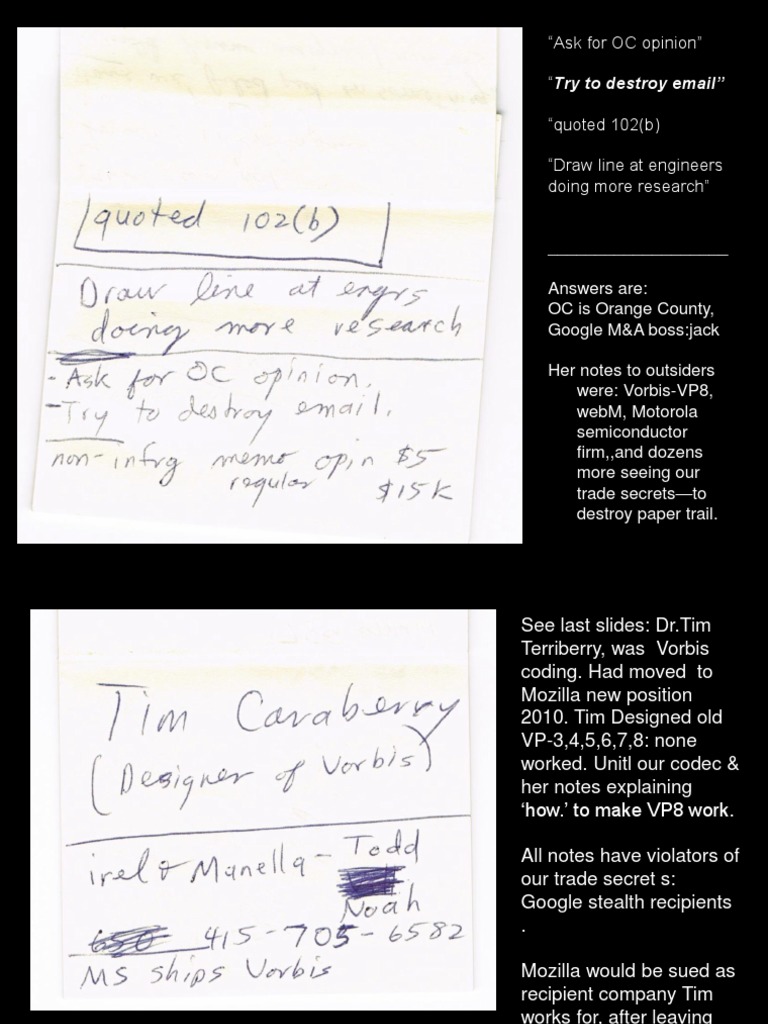 quoted 102(b)
Draw line at engrs
doing more research
- Ask for OC opinion.
- Try to destroy email.
non-infrg memo opin $5
regular $15K
“Ask for OC opinion”
“Try to destroy email”
“quoted 102(b)
“Draw line at engineers
doing more research”
Answers are:
OC is Orange County,
Google M&A boss:jack
Her notes to outsiders
were: Vorbis-VP8,
webM, Motorola
semiconductor
firm,,and dozens
more seeing our
trade secrets—to
destroy paper trail.
Tim Caraberry
(Designer of Vorbis)
irel & Manella - Todd
Noah
415-705-6582
MS ships Vorbis
See last slides: Dr.Tim
Terriberry, was Vorbis
coding. Had moved to
Mozilla new position
2010. Tim Designed old
VP-3,4,5,6,7,8: none
worked. Unitl our codec &
her notes explaining
‘how.’ to make VP8 work.
All notes have violators of
our trade secret s:
Google stealth recipients
.
Mozilla would be sued as
recipient company Tim
works for, after leaving